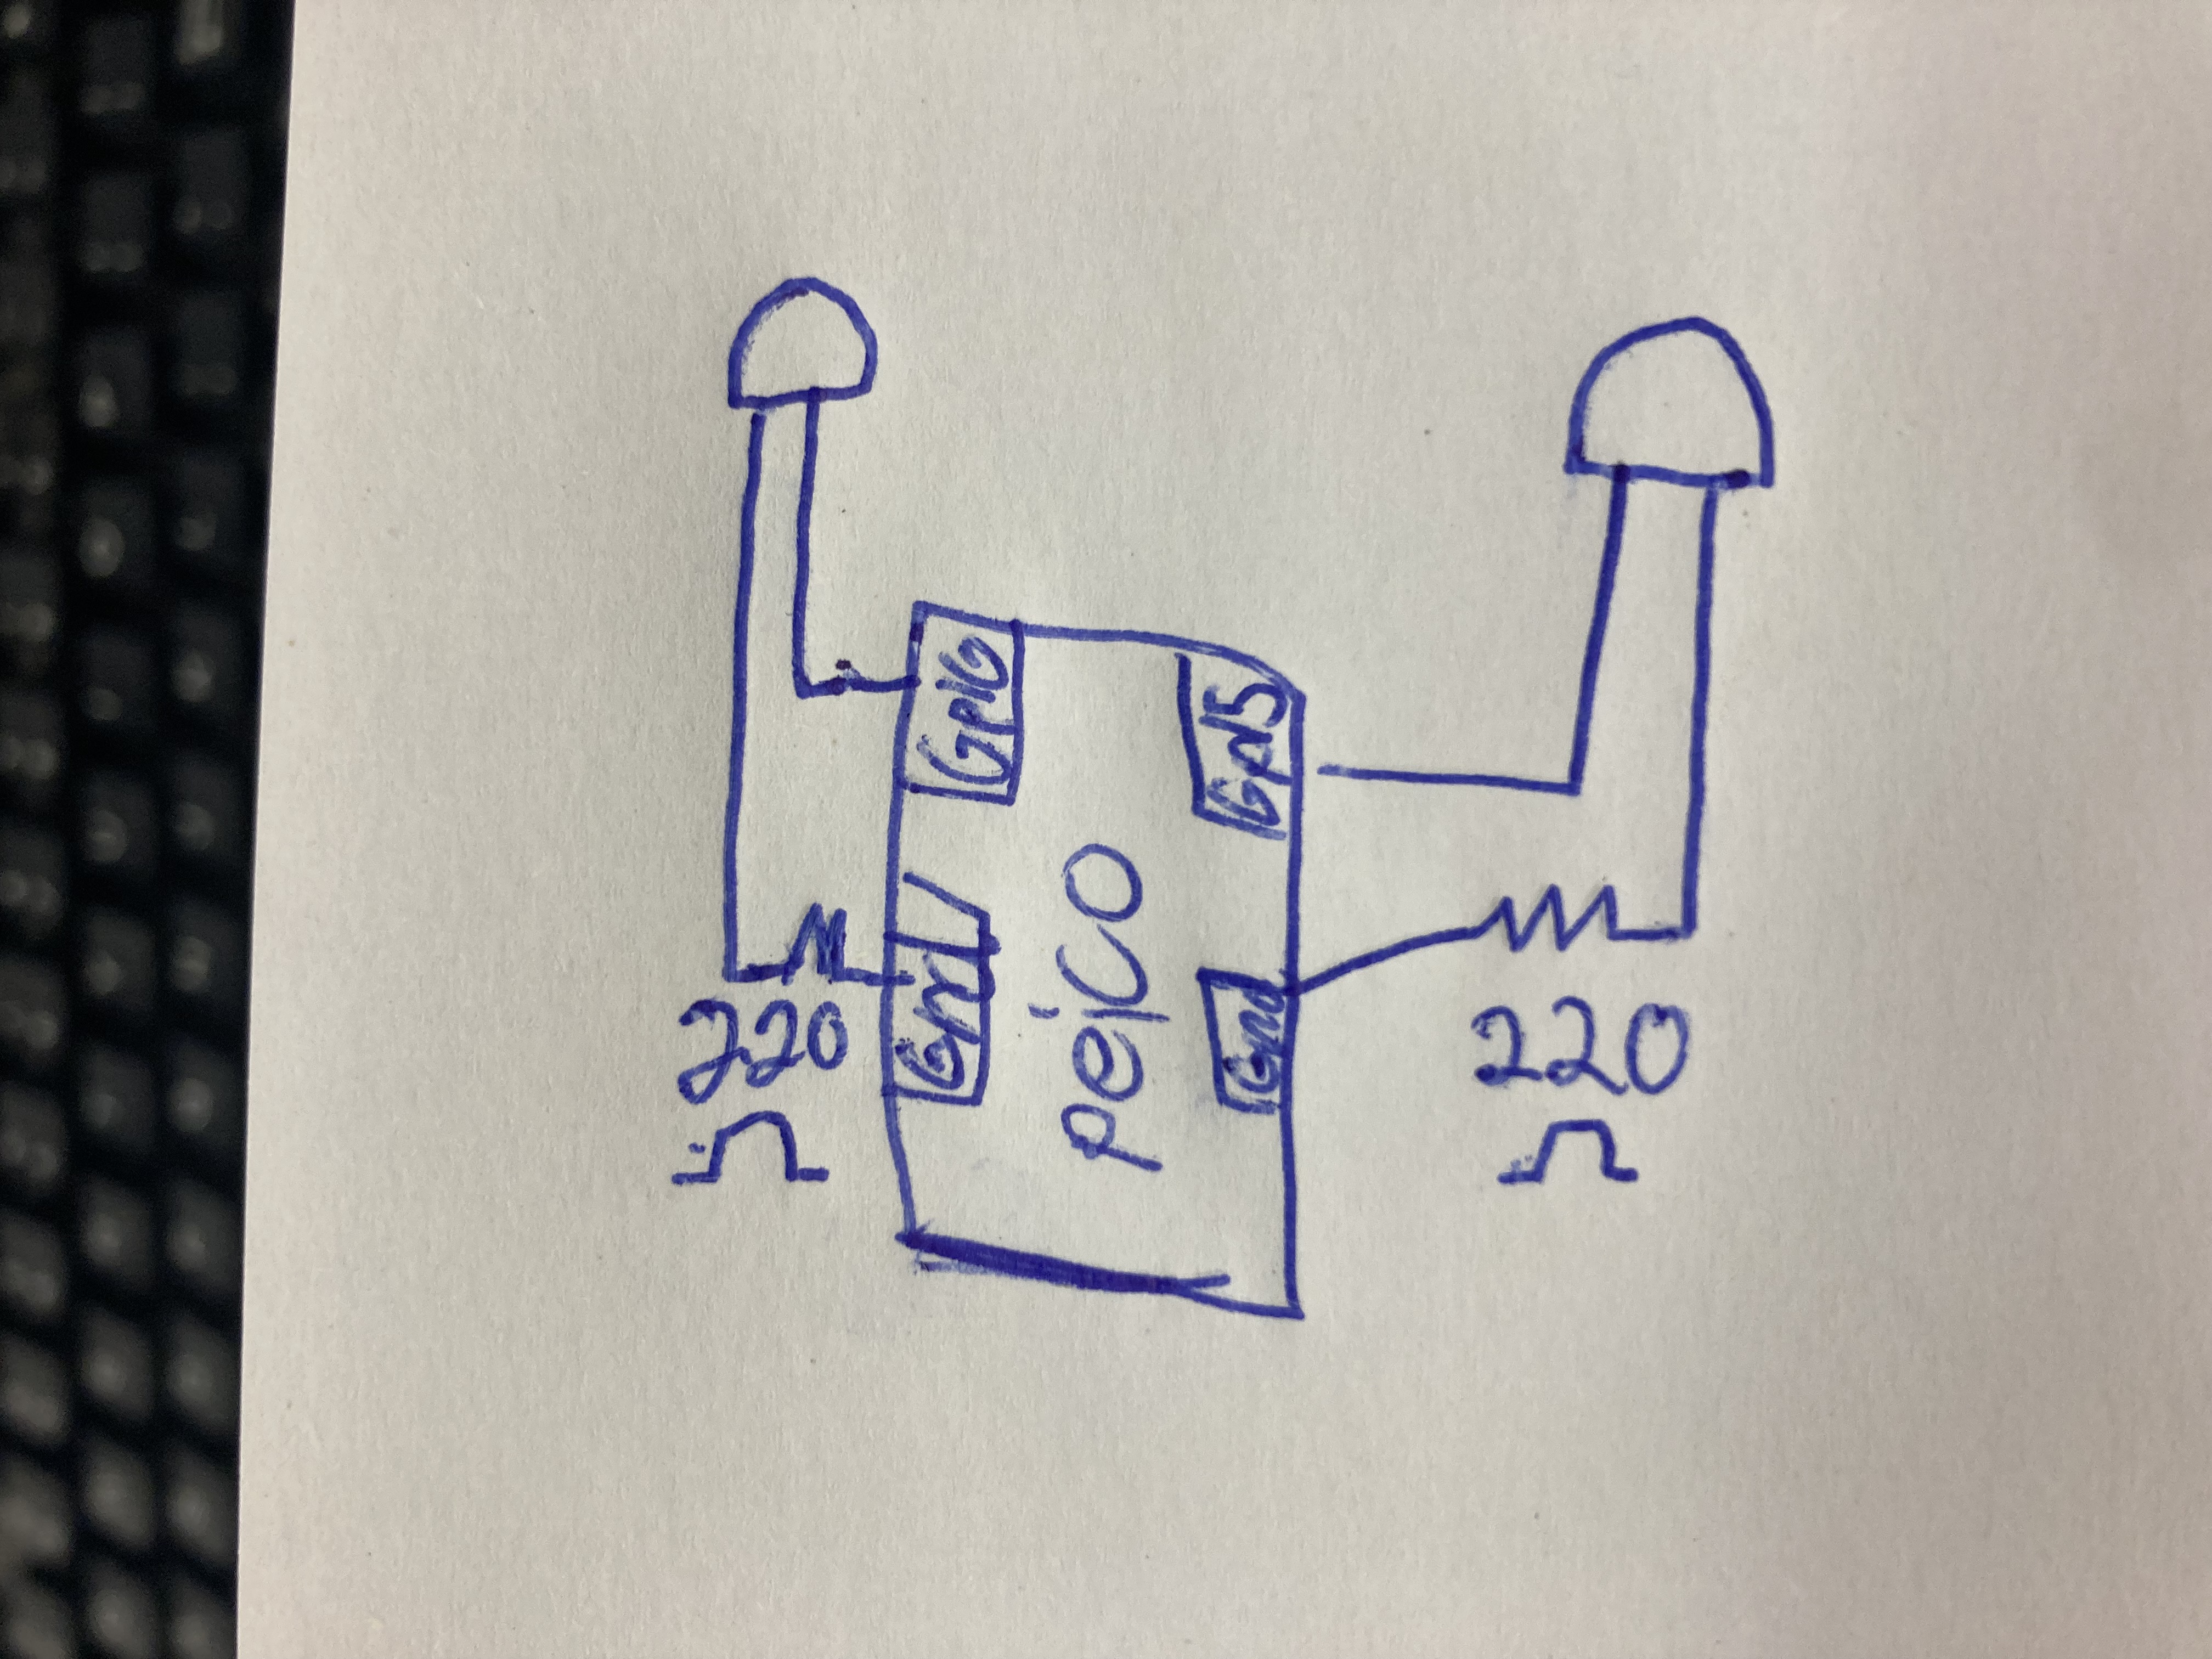 220
Ω
Gnd
Gp16
peico
Gnd
Gp15
220
Ω